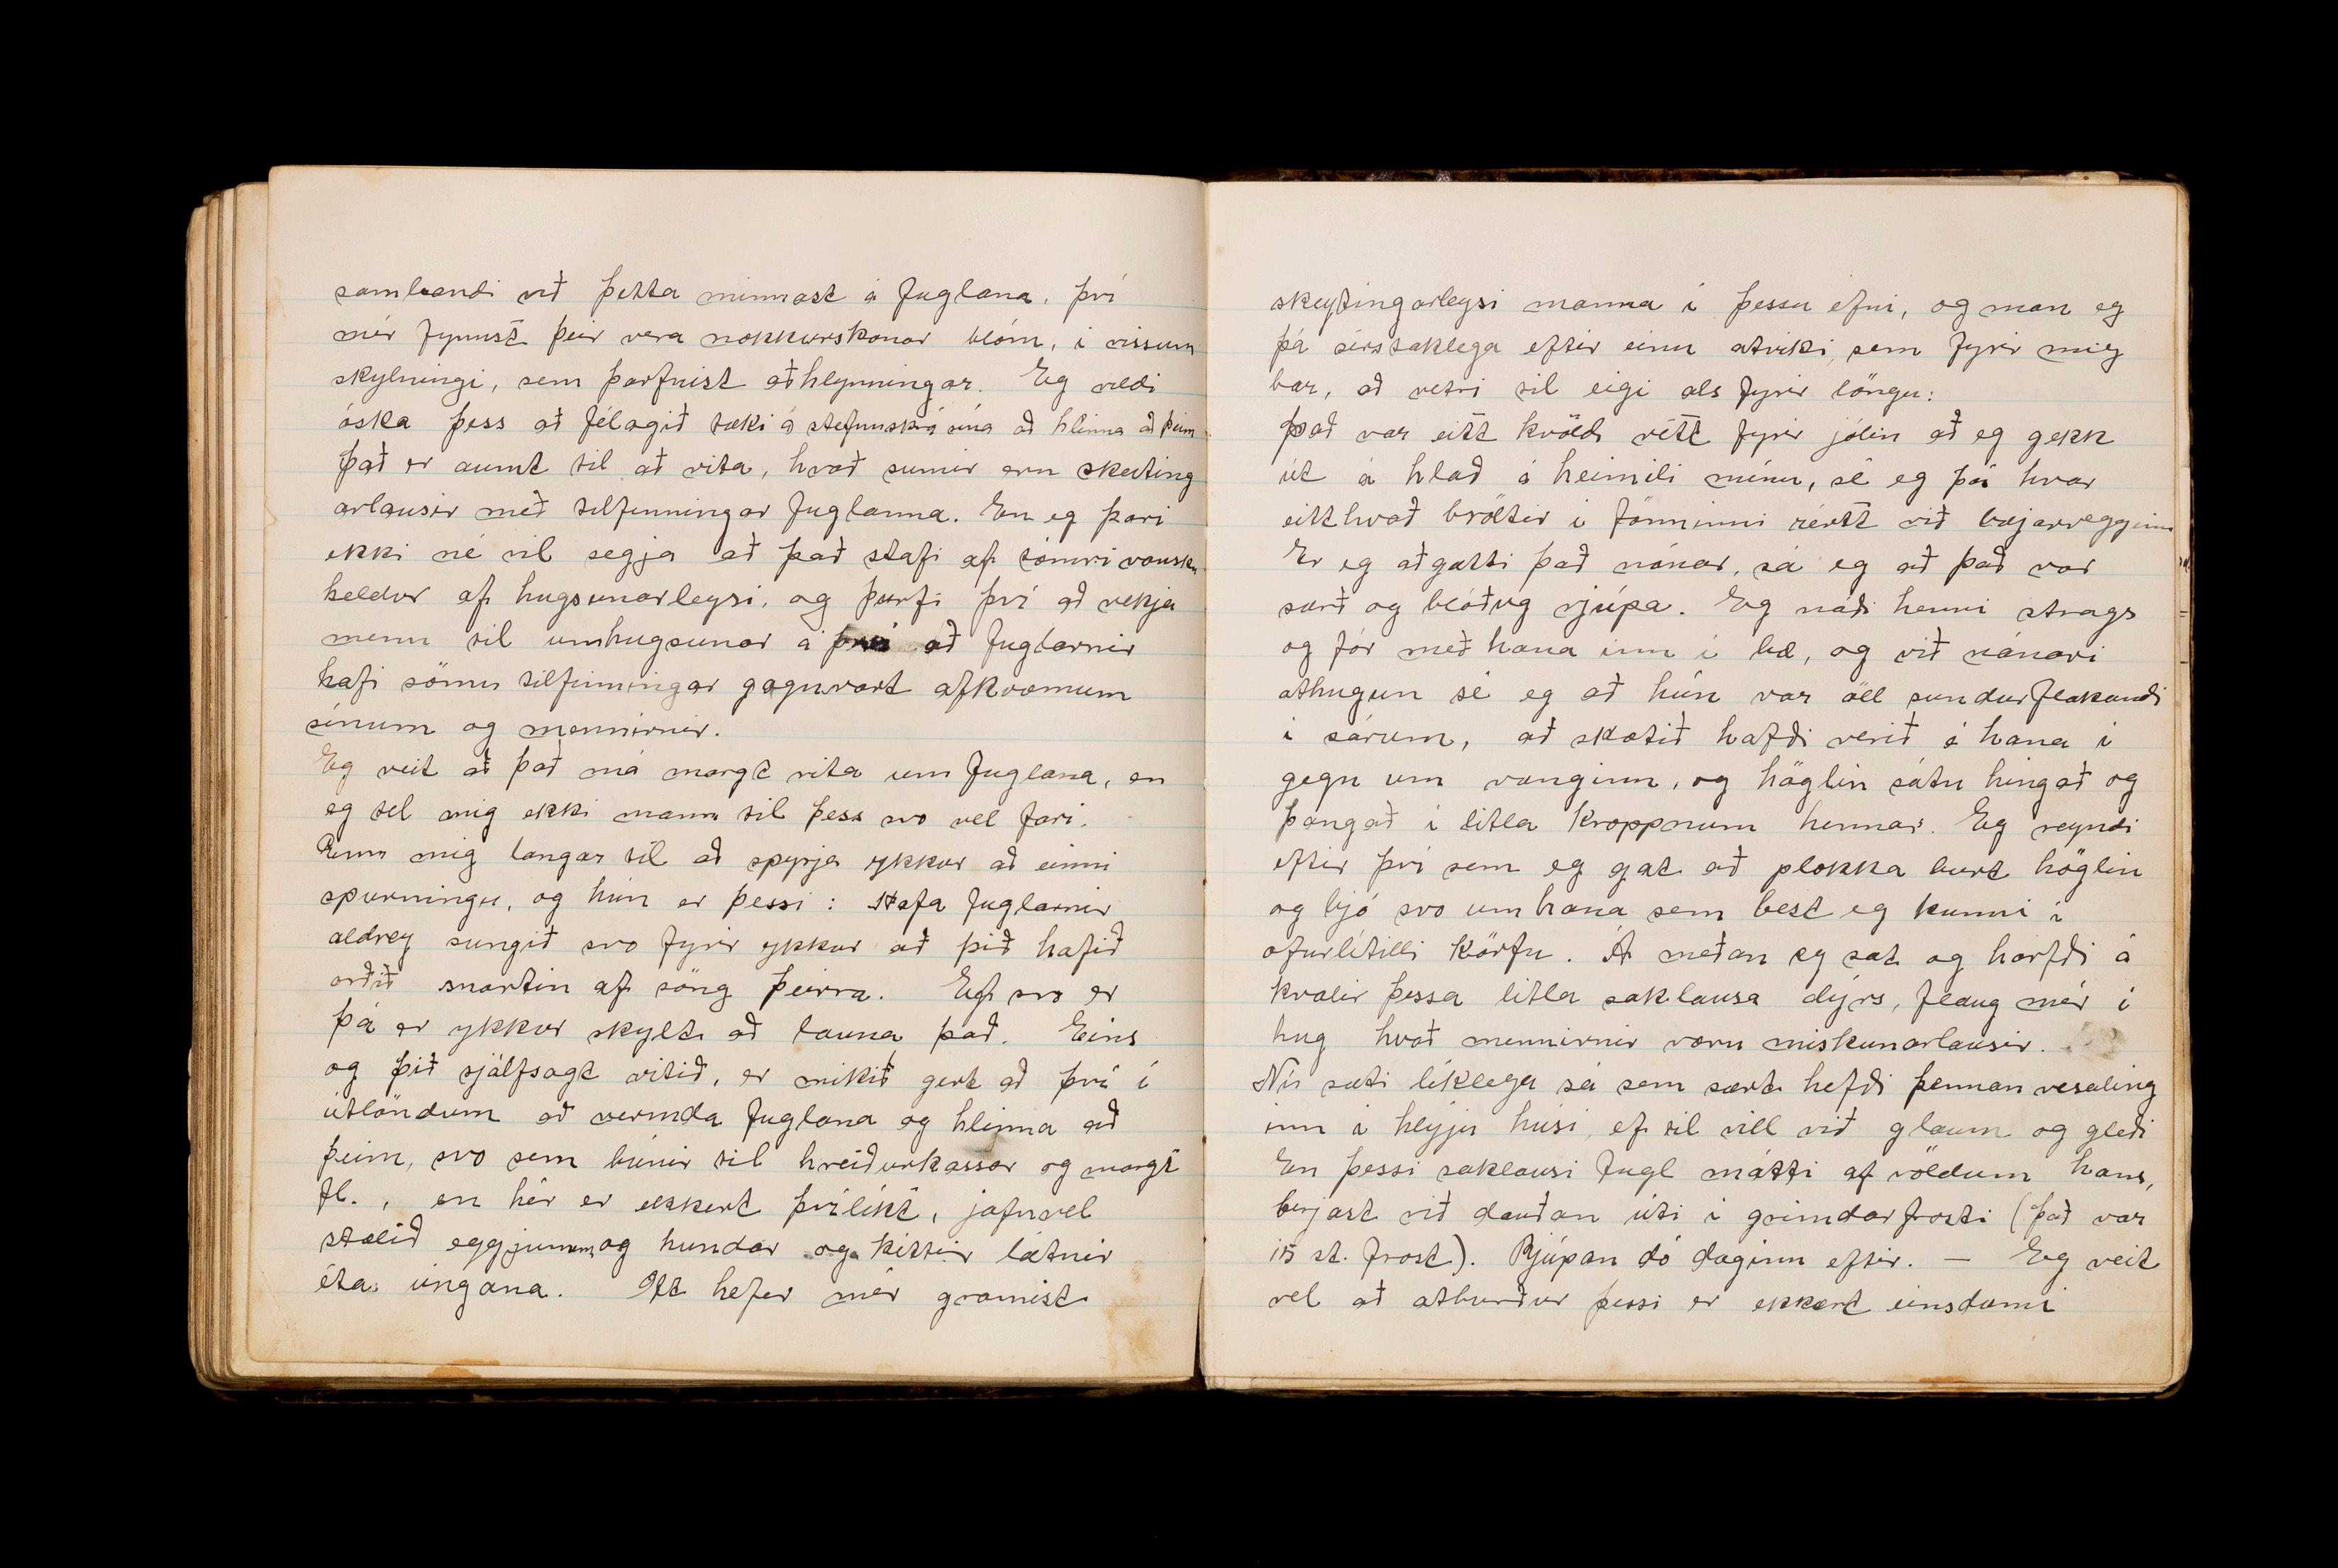 sambandi við þetta minnast á fuglana, því
mér fynnst þeir vera nokkurskonar blóm, í vissum
skylningi, sem þarfnist aðhlynningar. Eg vildi
óska þess að félagið tæki á stefnuskrá sína að hlinna að þeim
það er aumt til að vita, hvað sumir eru skeiting
arlausir með tilfinningar fuglanna. En eg þori
ekki né vil segja að það stafi af tómri vonsku
heldur af hugsunarleysi, og þurfi því að vekja
menn til umhugsunar á því að fuglarnir
hafi sömu tilfinningar gagnvart afkvæmum
sínum og mennirnir.
Eg veit að það má margt rita um fuglana, en
eg tel mig ekki mann til þess svo vel fari.
Enn mig langar til að spyrja ykkur að einni
spurningu, og hún er þessi: Hafa fuglarnir
aldrey sungið svo fyrir ykkur að þið hafið
orðið snortin af söng þeirra. Ef svo er
þá er ykkur skylt að launa það. Eins
og þið sjálfsagt vitið, er mikið gert að því í
útlöndum að vermda fuglana og hlinna að
þeim, svo sem búnir til hreiðurkassar og margt
fl., en hér er ekkert þvílíkt, jafnvel
stolið eggjunum og hundar og kettir látnir
éta ungana. Oft hefur mér gramist
skeytingarleysi manna í þessu efni, og man eg
þá sérstaklega eftir einu atviki, sem fyrir mig
bar, að vetri til eigi als fyrir löngu:
það var eitt kvöld rétt fyrir jólin að eg gekk
út á hlað á heimili mínu, sé eg þá hvar
eitthvað bröltir í fönninni rértt við bæjarvegginn
Er eg aðgætti það nánar, sá eg að það var
særð og blóðug rjúpa. Eg náði henni strags
og fór með hana inn í bæ, og við nánari
athugun sé eg að hún var öll sundurflakandi
í sárum, að skotið hafði verið á hana í
gegn um vænginn, og höglin sátu hingað og
þangað í litla kroppnum hennar. Eg reyndi
eftir því sem eg gat að plokka burt höglin
og bjó svo um hana sem best eg kunni í
ofurlítilli körfu. Á meðan eg sat og horfði á
kvalir þessa litla saklausa dýrs, flaug mér í
hug hvað mennirnir væru miskunarlausir.
Nú sæti líklega sá sem sært hefði þennan vesaling
inn í hlýju húsi, ef til vill við glaum og gleði
En þessi saklausi fugl mátti af völdum hans,
berjast við dauðan úti í grimdar frosti (það var
15 st. frost). Rjúpan dó daginn eftir. — Eg veit
vel að atburður þessi er ekkert einsdæmi